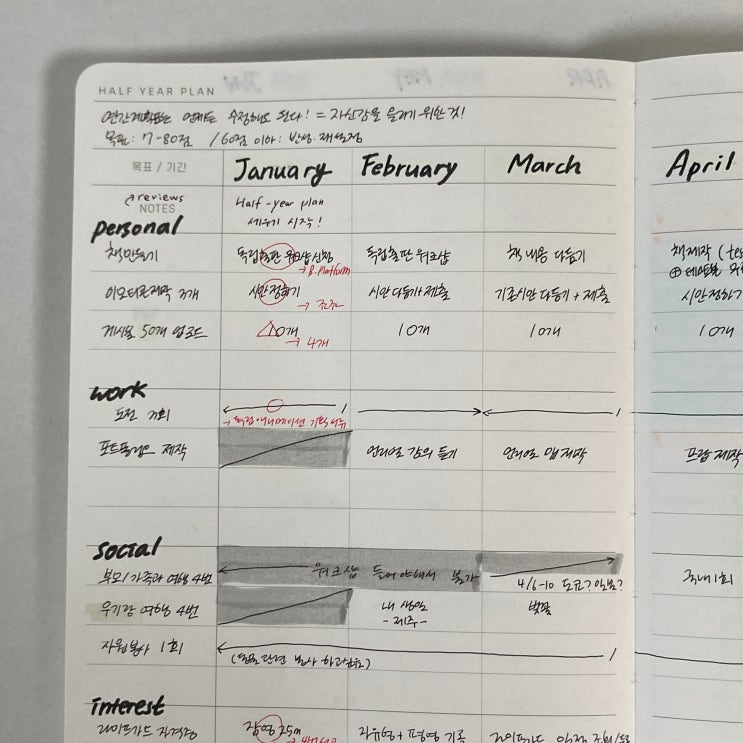 HALF YEAR PLAN
연간계획표는 언제든 수정해도 된다! = 자신감을 늘리기 위한 것!
목표: 7-80점 / 60점 이하: 반성·재설정
목표 / 기간 January February March April
reviews
NOTES Half-year plan
세우기 시작!
personal
책만들기 독립출판 워크샵 신청 독립출판 워크샵 책 내용 다듬기 책제작 (tes
→ B.platform
이모티콘제작 3개 시안정하기 시안다듬기+제출 기존시안 다듬기 + 제출 시안정하기
게시물 50개 업로드 10개 10개 10개 10개
→ 4개
work
도전 기회
포트폴리오 제작 언리얼 강의 듣기 언리얼 맵 제작
social
부모/가족과 여행 4번 워크샵 들어야해서 불가 4/6-10 도쿄? 일본? 국내 1회
우기랑 여행 4번 내 생일 벚꽃
- 제주 -
자원봉사 1회
interest
라이프가드 자격증 잠영 25m 자유형 + 평영 기록